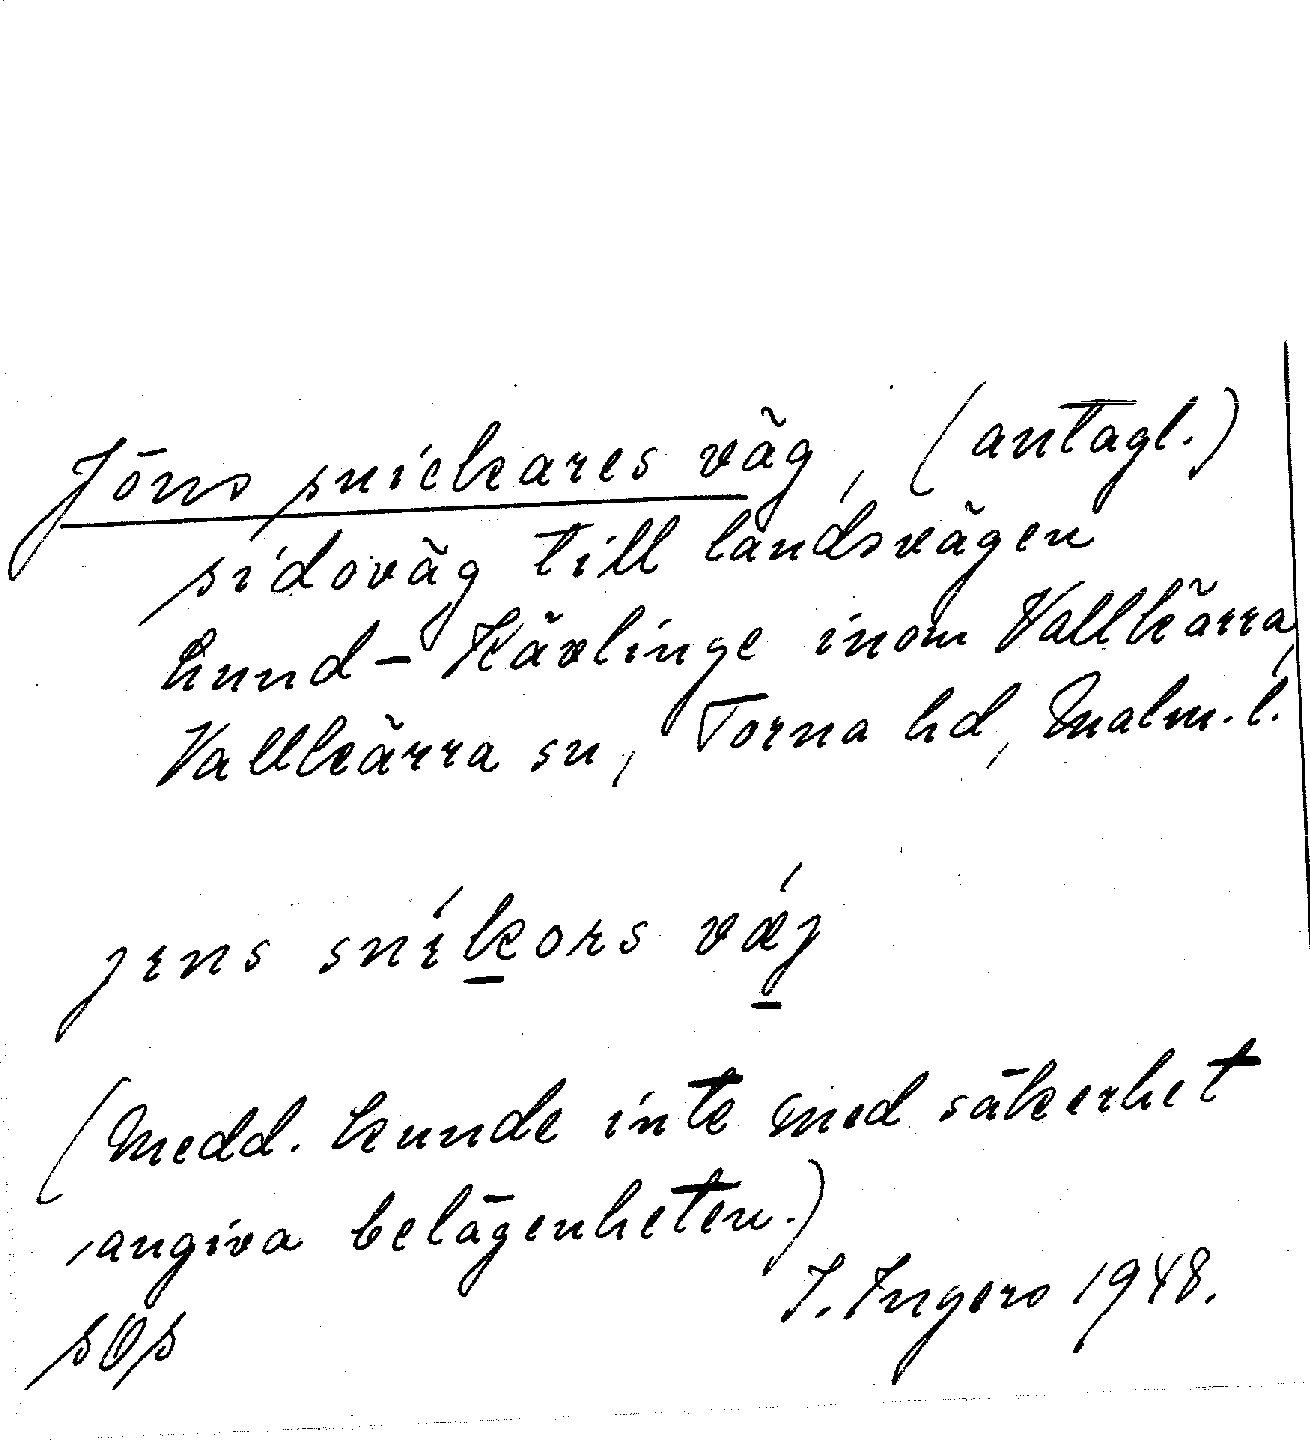 Jöns snickares väg, (antagl.)
sidoväg till landsvägen
Lund – Kävlinge inom Vallkärra,
Vallkärra sn, Torna hd, Malm. l.
jens sníkors væ´j
(Medd. kunde inte med säkerhet
angiva belägenheten.)
I. Ingers 1948.